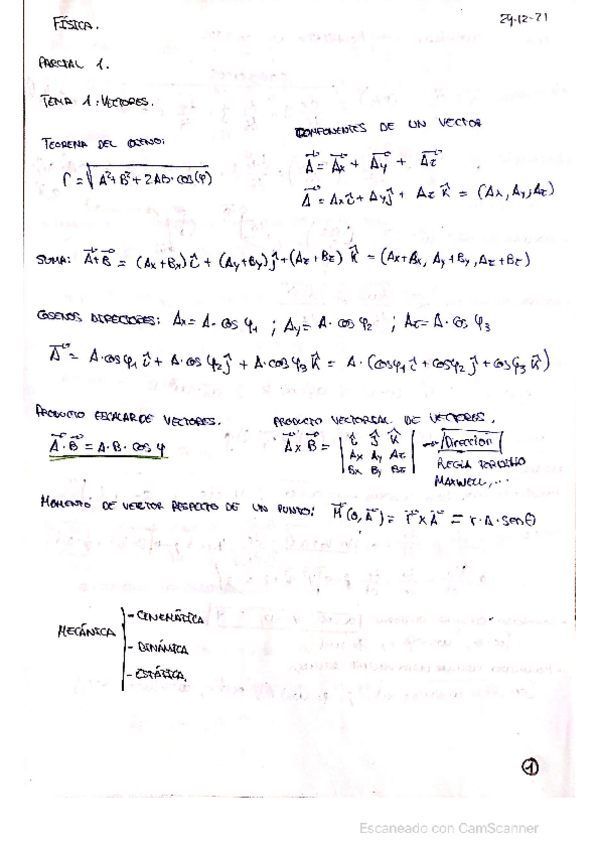 FÍSICA.
29-12-21
PARCIAL 1.
TEMA 1: VECTORES.
TEOREMA DEL COSENO:
r = √(A² + B² + 2AB · cos(φ))
COMPONENTES DE UN VECTOR
A⃗ = A⃗x + A⃗y + A⃗z
A⃗ = Ax î + Ay ĵ + Az k̂ = (Ax, Ay, Az)
SUMA: A⃗+B⃗ = (Ax+Bx) î + (Ay+By) ĵ + (Az+Bz) k̂ = (Ax+Bx, Ay+By, Az+Bz)
COSENOS DIRECTORES: Ax = A · cos φ1 ; Ay = A · cos φ2 ; Az = A · cos φ3
A⃗ = A·cos φ1 î + A·cos φ2 ĵ + A·cos φ3 k̂ = A · (cos φ1 î + cos φ2 ĵ + cos φ3 k̂)
PRODUCTO ESCALAR DE VECTORES.
A⃗ · B⃗ = A · B · cos φ
PRODUCTO VECTORIAL DE VECTORES.
A⃗ x B⃗ = | î ĵ k̂ | → Direccion
| Ax Ay Az |
| Bx By Bz |
REGLA TORNILLO
MAXWELL,...
MOMENTO DE VECTOR RESPECTO DE UN PUNTO: M⃗(O, A⃗) = r⃗ x A⃗ = r · A · senθ
MECÁNICA
- CINEMÁTICA
- DINÁMICA
- ESTÁTICA.
1
Escaneado con CamScanner